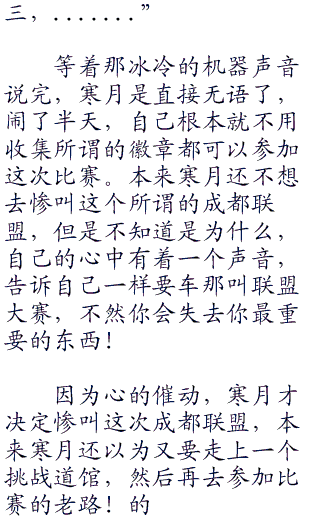 三，.......”
等着那冰冷的机器声音
说完，寒月是直接无语了，
闹了半天，自己根本就不用
收集所谓的徽章都可以参加
这次比赛。本来寒月还不想
去惨叫这个所谓的成都联
盟，但是不知道是为什么，
自己的心中有着一个声音，
告诉自己一样要车那叫联盟
大赛，不然你会失去你最重
要的东西！
因为心的催动，寒月才
决定惨叫这次成都联盟，本
来寒月还以为又要走上一个
挑战道馆，然后再去参加比
赛的老路！的